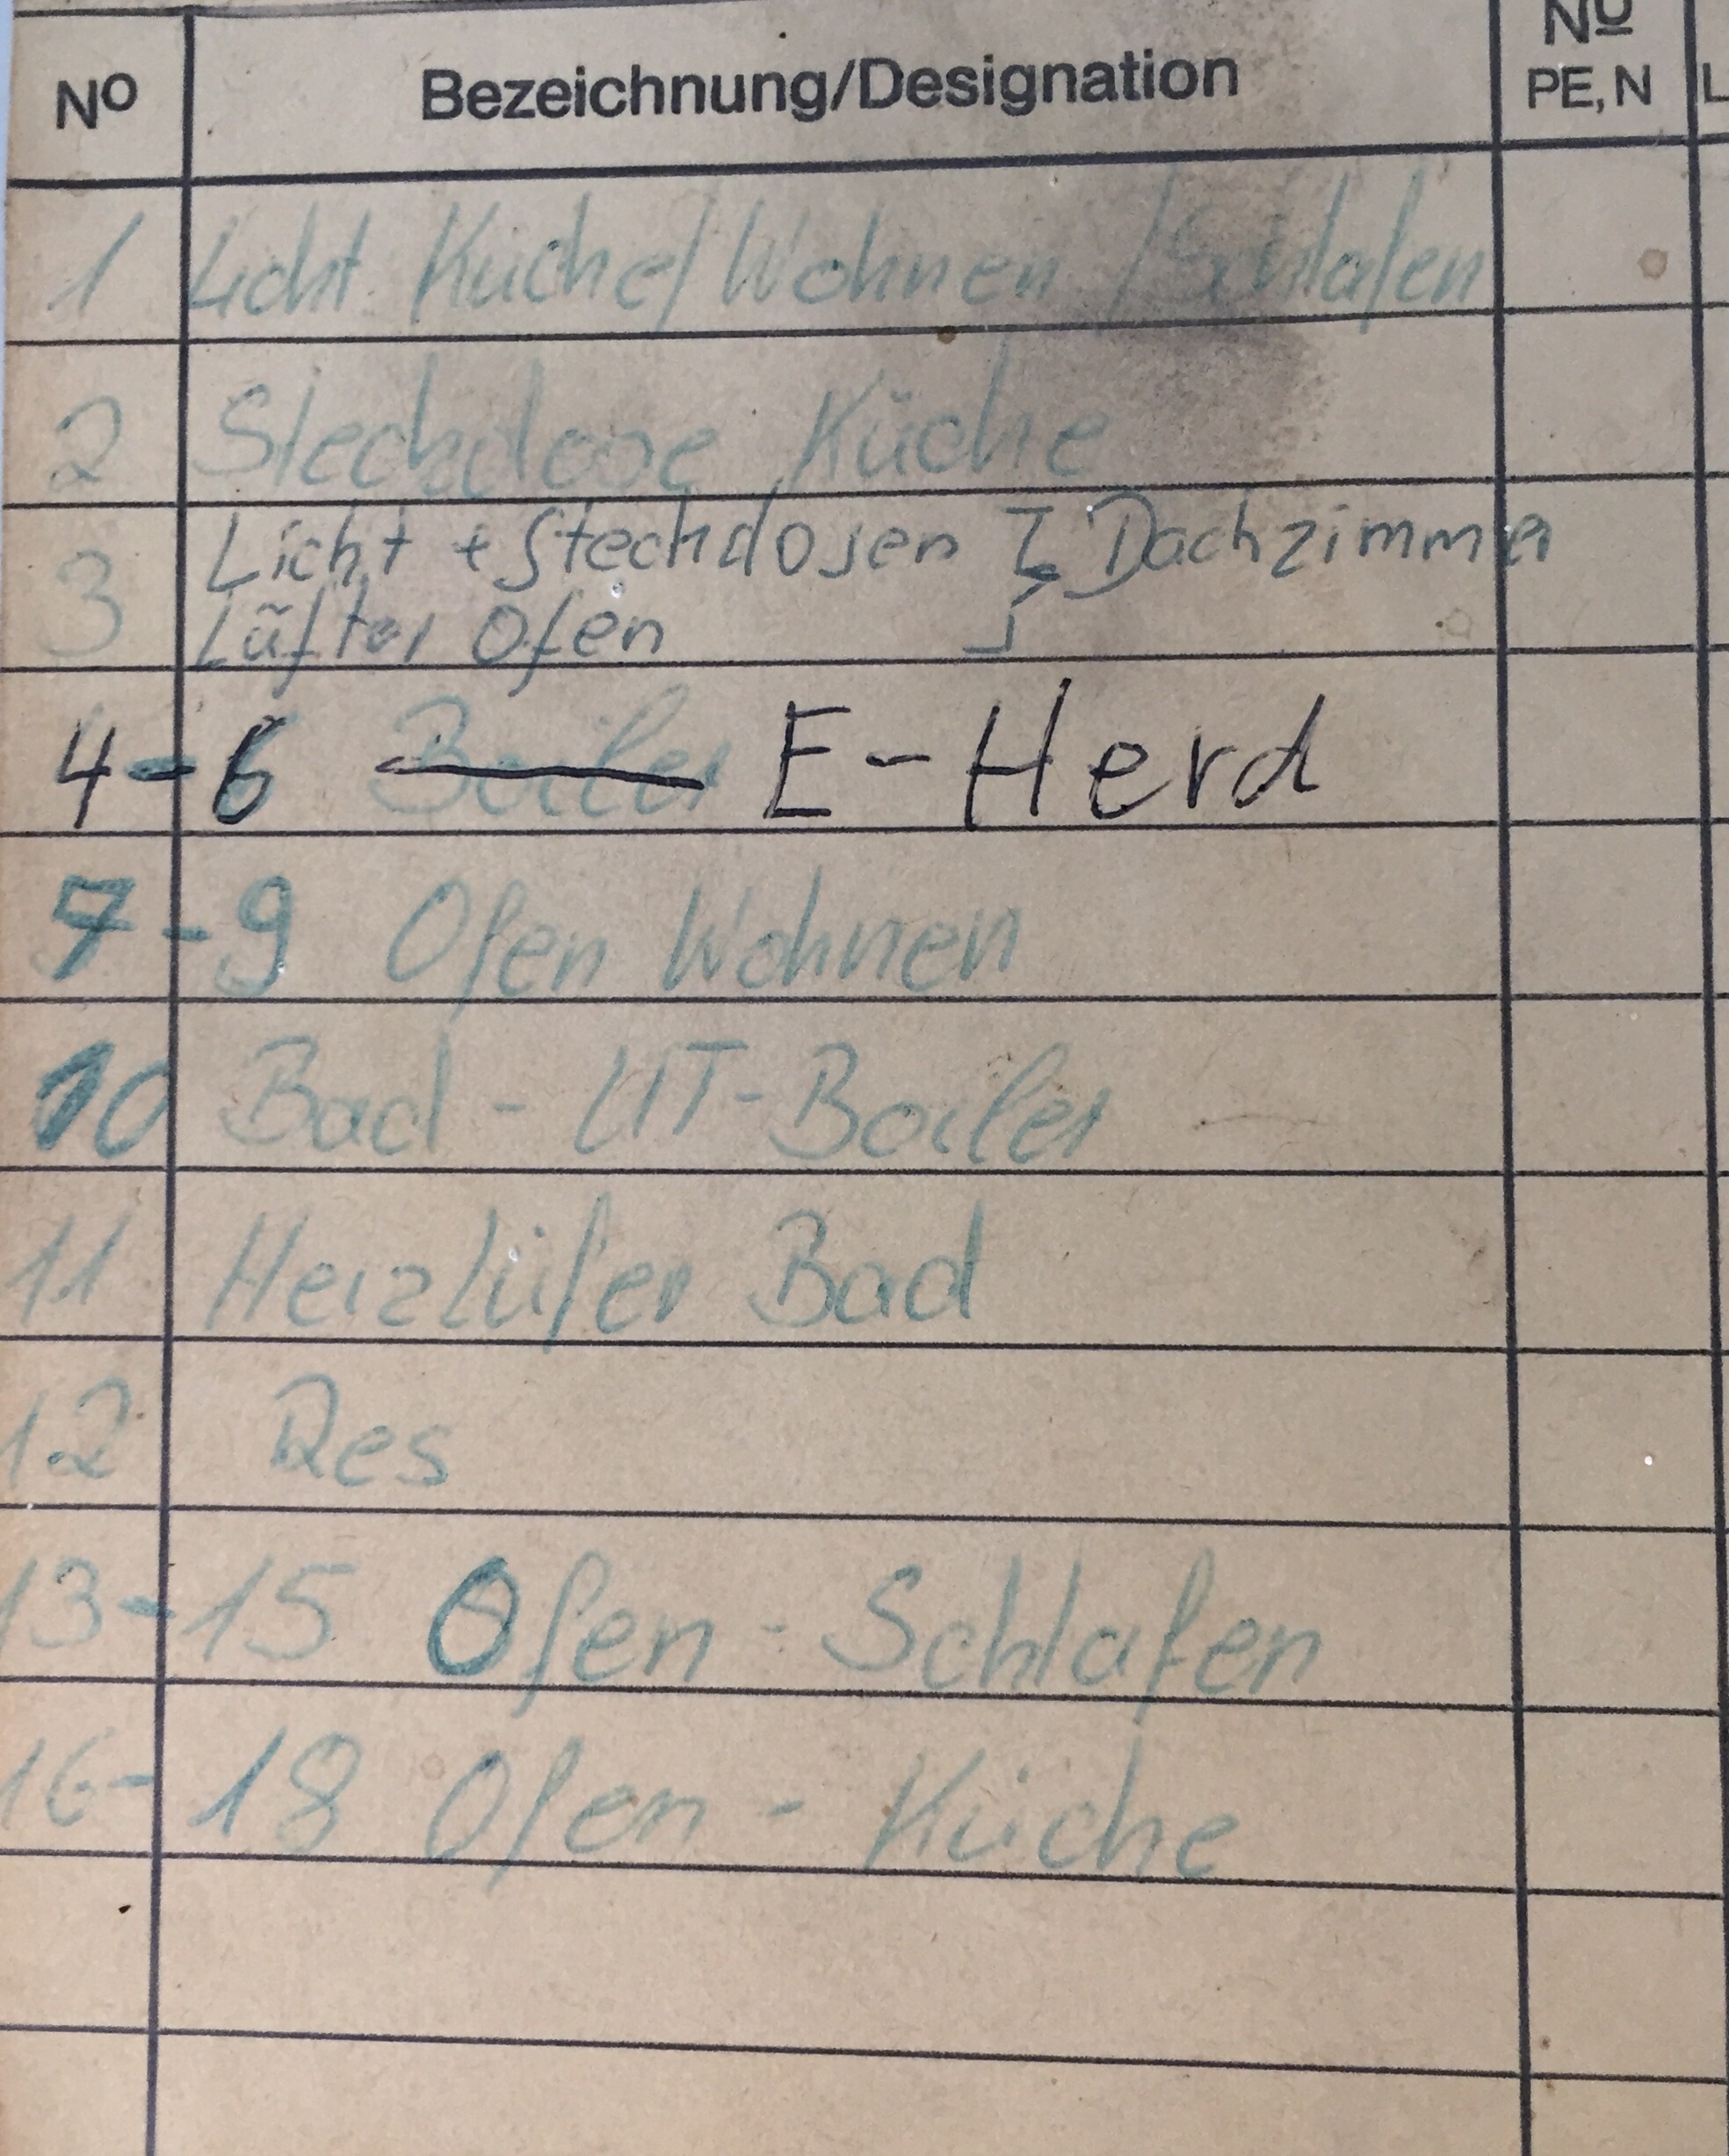 Nº Bezeichnung/Designation Nº PE, N L
1 Licht Küche/Wohnen/Schlafen
2 Steckdose Küche
3 Licht + Steckdosen } Dachzimmer
Lüfter Ofen
4-6 Boiler E-Herd
7-9 Ofen Wohnen
10 Bad - UT-Boiler
11 Heizlüfer Bad
12 Res
13-15 Ofen - Schlafen
16-18 Ofen - Küche